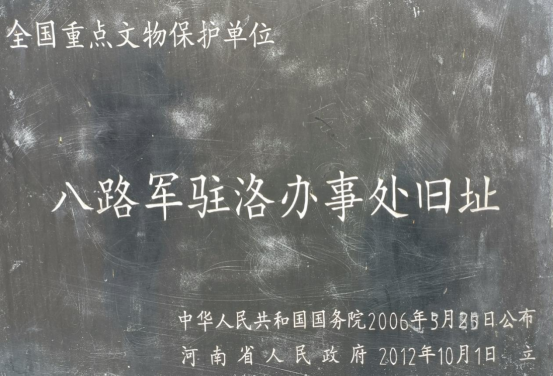 全国重点文物保护单位
八路军驻洛办事处旧址
中华人民共和国国务院2006年5月25日公布
河南省人民政府 2012年10月1日 立